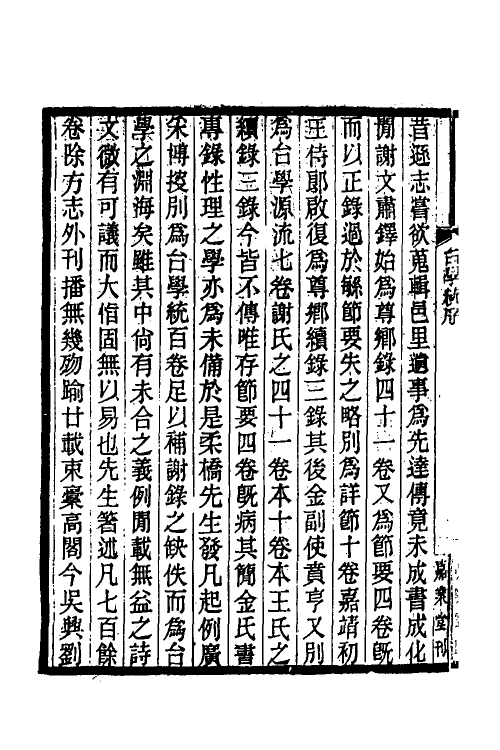 台學統序
昔遜志嘗欲蒐輯邑里遺事爲先達傳竟未成書成化
閒謝文肅鐸始爲尊鄉錄四十一卷又爲節要四卷旣
而以正錄過於緐節要失之略別爲詳節十卷嘉靖初
王侍郎啟復爲尊鄉續錄三錄其後金副使賁亨又別
爲台學源流七卷謝氏之四十一卷本十卷本王氏之
續錄三錄今皆不傳唯存節要四卷旣病其簡金氏書
專錄性理之學亦爲未備於是柔橋先生發凡起例廣
宋博挍別爲台學統百卷足以補謝錄之缺佚而爲台
學之淵海矣雖其中尙有未合之義例閒載無益之詩
文微有可議而大恉固無以易也先生箸述凡七百餘
卷除方志外刊播無幾歾踰廿載束稾高閣今吳興劉
嘉業堂刊